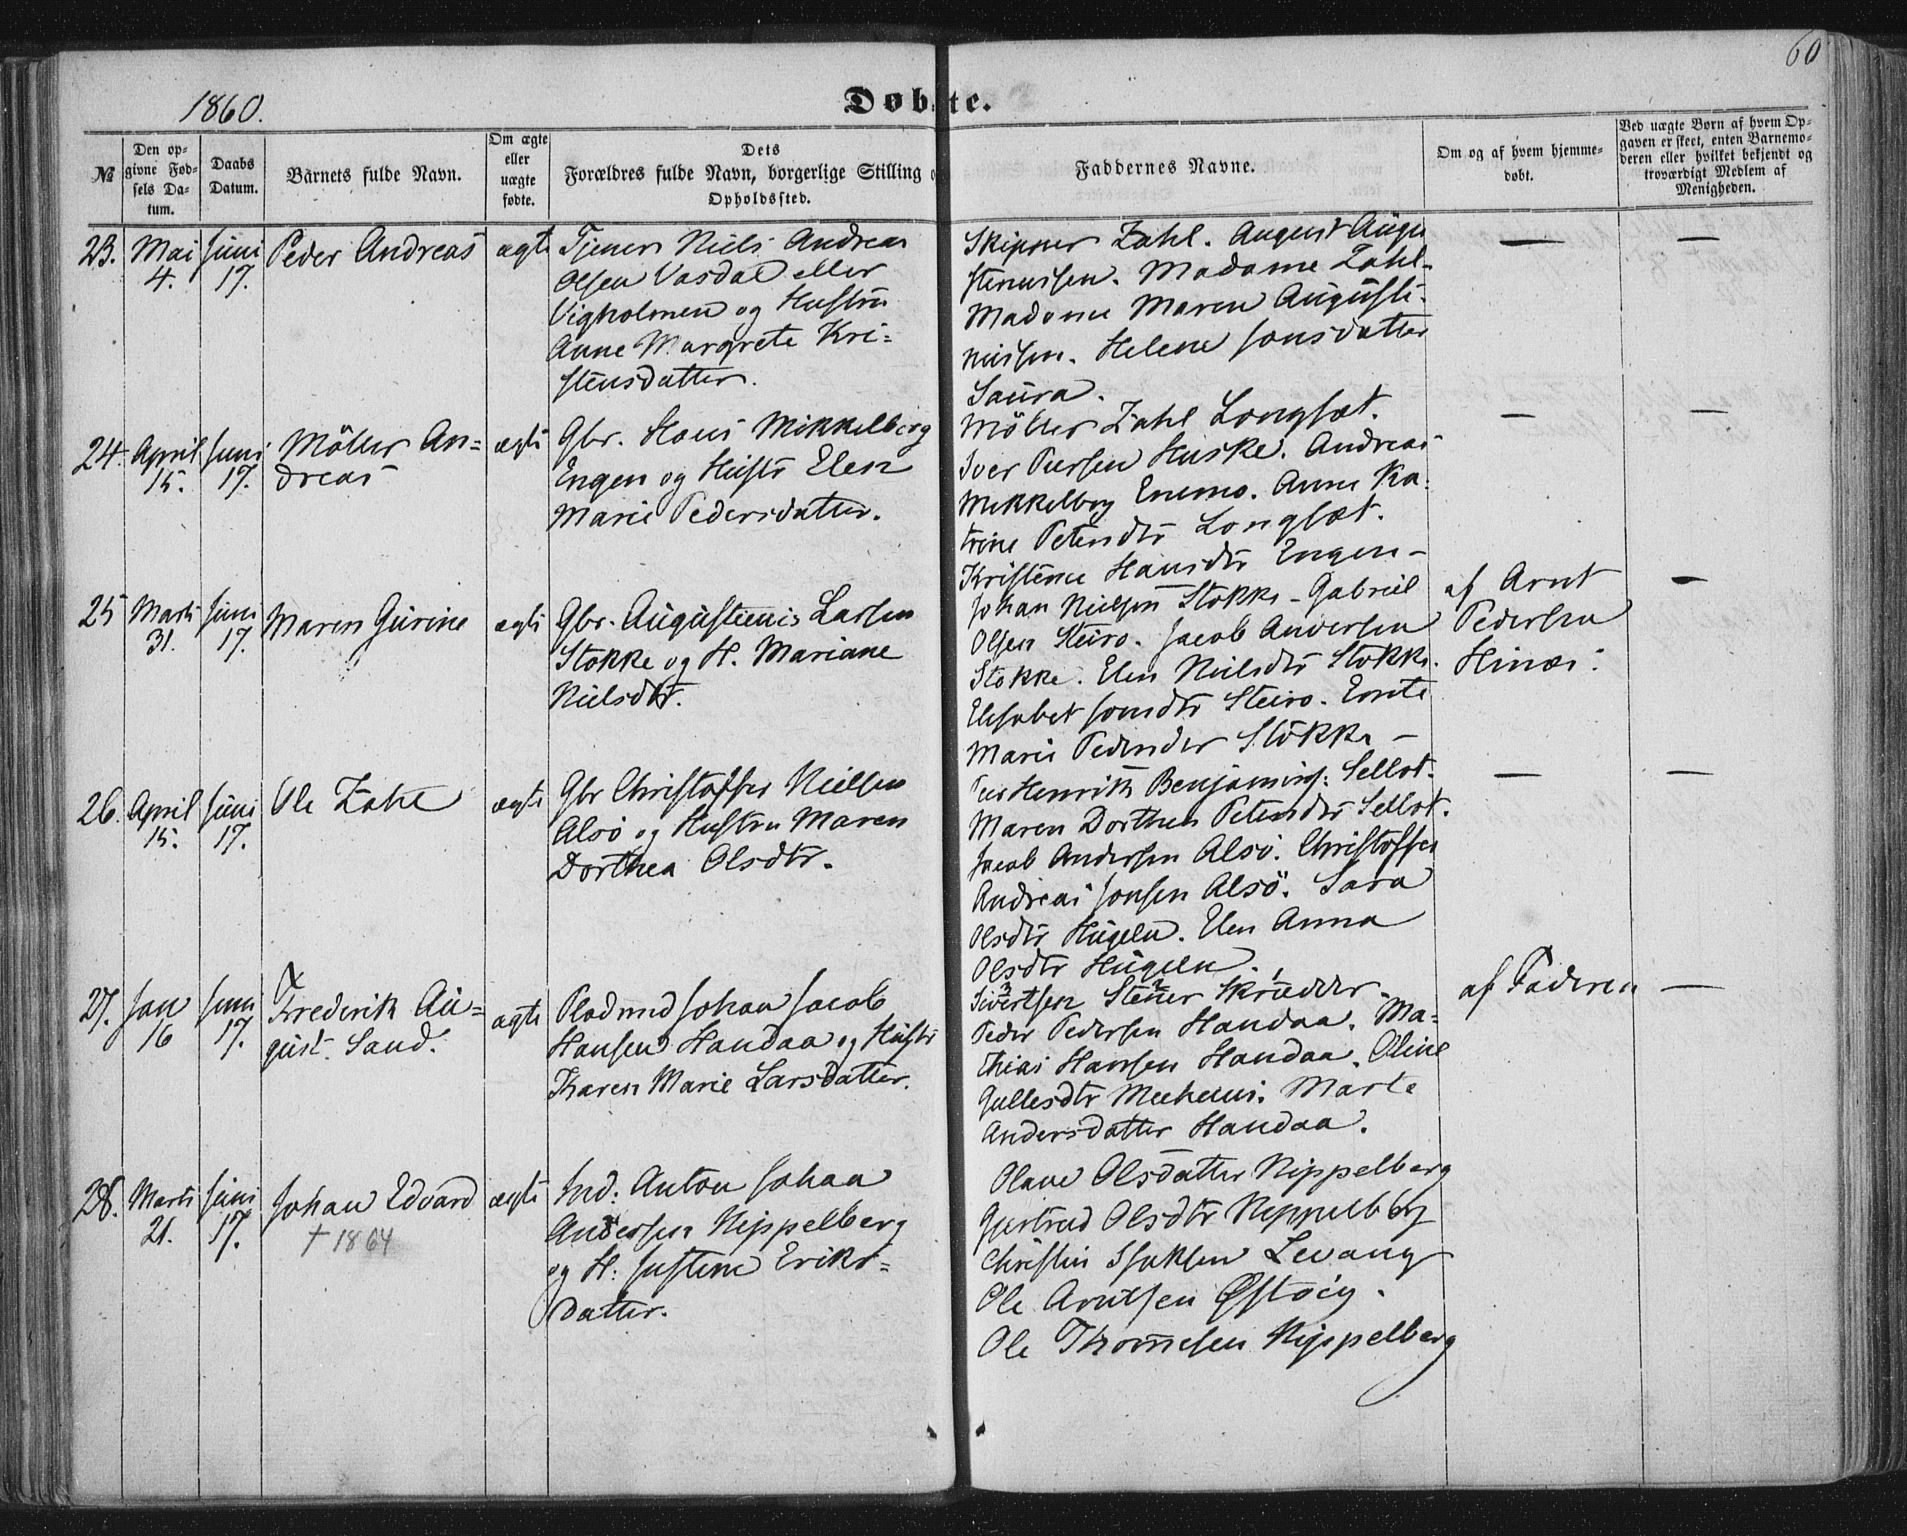 60
1860.
Døbte.
№
Den op-
givne Fød-
sels Da-
tum.
Daabs
Datum.
Barnets fulde Navn.
Om ægte
eller
uægte
fødte.
Dets
Forældres fulde Navn, borgerlige Stilling o
Opholdssted.
Faddernes Navne.
Om og af hvem hjemme-
døbt.
Ved uægte Børn af hvem Op-
gaven er skeet, enten Barnemo-
deren eller hvilket bekjendt og
troværdigt Medlem af
Menigheden.
23. Mai 4. Juni 17. Peder Andreas ægte
Tjener Niels Andreas
Olsen Vasdal eller
Vigholmen og Hustru
Anne Margrete Kri-
stensdatter.
Skipper Zahl. August Augu
stinussen. Madame Zahl-
Madame Maren Augusti-
nussen. Helene Jonsdatter
Saura.
— —
24. April 15. Juni 17. Möller An-
dreas
ægte
Gbr. Hans Mikkelborg
Engen og Hustr Elen
Marie Pedersdatter.
Möller Zahl Langsæt.
Iver Peersen Huske. Andreas
Mikkelborg Enemo. Anne Ka-
trine Petersdtr Langsæt.
Kristence Hansdtr Engen-
— —
25 Marts 31. Juni 17. Maren Gurine ægte
Gbr. Augustinus Larsen
Stokke og H. Mariane
Nielsdtr.
Johan Nielsen Stokke - Gabriel
Olsen Steiro. Jacob Andersen
Stokke. Elen Nielsdtr Stokke.
Elisabet Jonsdtr Steiro.
Marie Pedersdtr Stokke -
af Arnt
Pedersen
Hinæs.
—
26. April 15. Juni 17. Ole Zahl ægte
Gbr Christoffer Nielsen
Alsö og Hustru Maren
Dorthea Olsdtr.
Peer Henrik Benjamins: Selsöt.
Maren Dorthea Petersdtr
Jacob Andersen Alsö. Christoffer
Andreas Jonsen Alsö. Sara
Olsdtr Hugeln. Elen Anna
Olsdtr Hugeln.
— —
27. Jan 16 Juni 17. Frederik Au-
gust Sand.
ægte
Pladsmd Johan Jacob
Hansen Handaa og Hustr
Karen Marie Larsdatter.
Sivertsen Stener Skræder.
Peder Pedersen Handaa. Ma-
thias Hansen Handaa. Oline
Gullesdtr Marte
Andersdatter Handaa.
af Faderen
—
28. Marts 21. Juni 17. Johan Edvard ægte
† 1864
Ind: Anton Johan
Andersen Nippelberg
og H: Justine Eriks-
datter.
Olave Olsdatter Nippelberg
Gjertrud Olsdtr Nippelberg
Christen Isaksen Levang
Ole Arntsen Østvig.
Ole Thomesen Nippelberg